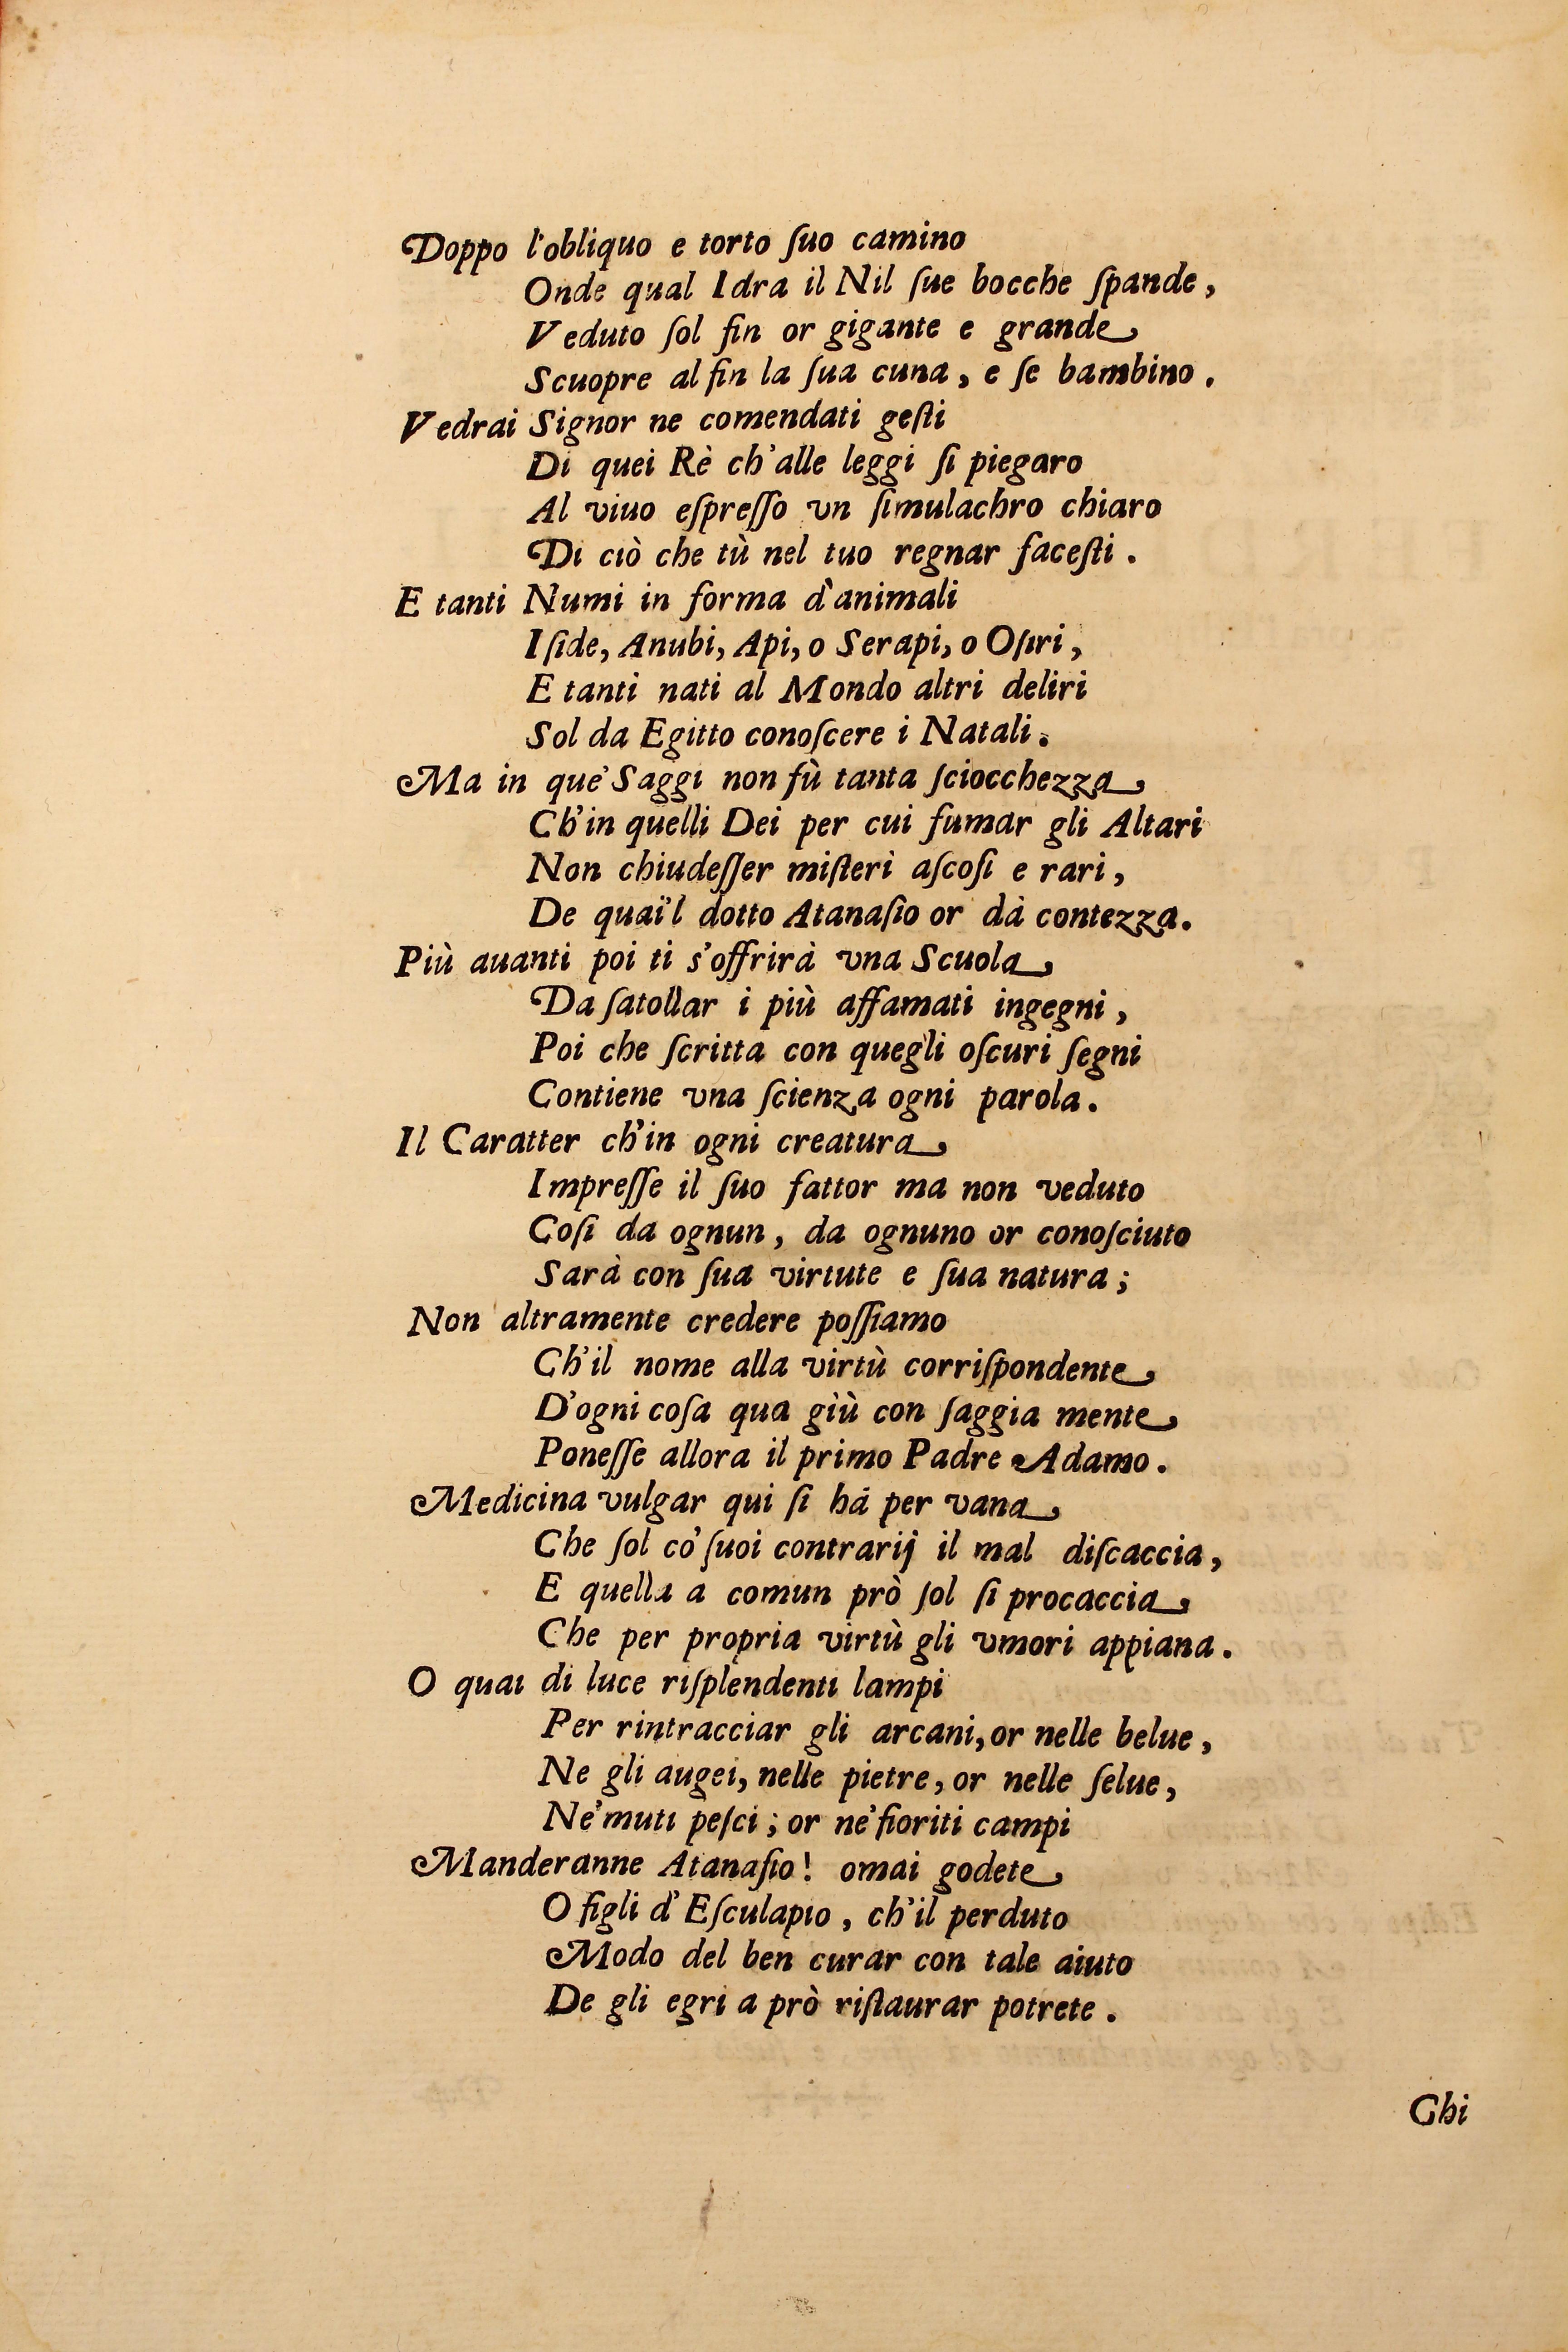 Doppo l'obliquo e torto ſuo camino
Onde qual Idra il Nil ſue bocche ſpande,
Veduto ſol fin or gigante e grande
Scuopre al fin la ſua cuna, e ſe bambino.
Vedrai Signor ne comendati geſti
Di quei Rè ch'alle leggi ſi piegaro
Al viuo eſpreſſo vn ſimulachro chiaro
Di ciò che tù nel tuo regnar faceſti.
E tanti Numi in forma d'animali
Iſide, Anubi, Api, o Serapi, o Oſiri,
E tanti nati al Mondo altri deliri
Sol da Egitto conoſcere i Natali.
Ma in que' Saggi non fù tanta ſciocchezza
Ch'in quelli Dei per cui fumar gli Altari
Non chiudeſſer miſteri aſcoſi e rari,
De quai'l dotto Atanaſio or dà contezza.
Più auanti poi ti s'offrirà vna Scuola
Da ſatollar i più affamati ingegni,
Poi che ſcritta con quegli oſcuri ſegni
Contiene vna ſcienza ogni parola.
Il Caratter ch'in ogni creatura
Impreſſe il ſuo fattor ma non veduto
Coſi da ognun, da ognuno or conoſciuto
Sarà con ſua virtute e ſua natura;
Non altramente credere poſſiamo
Ch'il nome alla virtù corriſpondente
D'ogni coſa qua giù con ſaggia mente
Poneſſe allora il primo Padre Adamo.
Medicina vulgar qui ſi hà per vana
Che ſol co' ſuoi contrarij il mal diſcaccia,
E quella a comun prò ſol ſi procaccia
Che per propria virtù gli vmori appiana.
O quai di luce riſplendenti lampi
Per rintracciar gli arcani, or nelle belue,
Ne gli augei, nelle pietre, or nelle ſelue,
Ne' muti peſci; or ne' fioriti campi
Manderanne Atanaſio! omai godete
O figli d'Eſculapio, ch'il perduto
Modo del ben curar con tale aiuto
De gli egri a prò riſtaurar potrete.
Chi